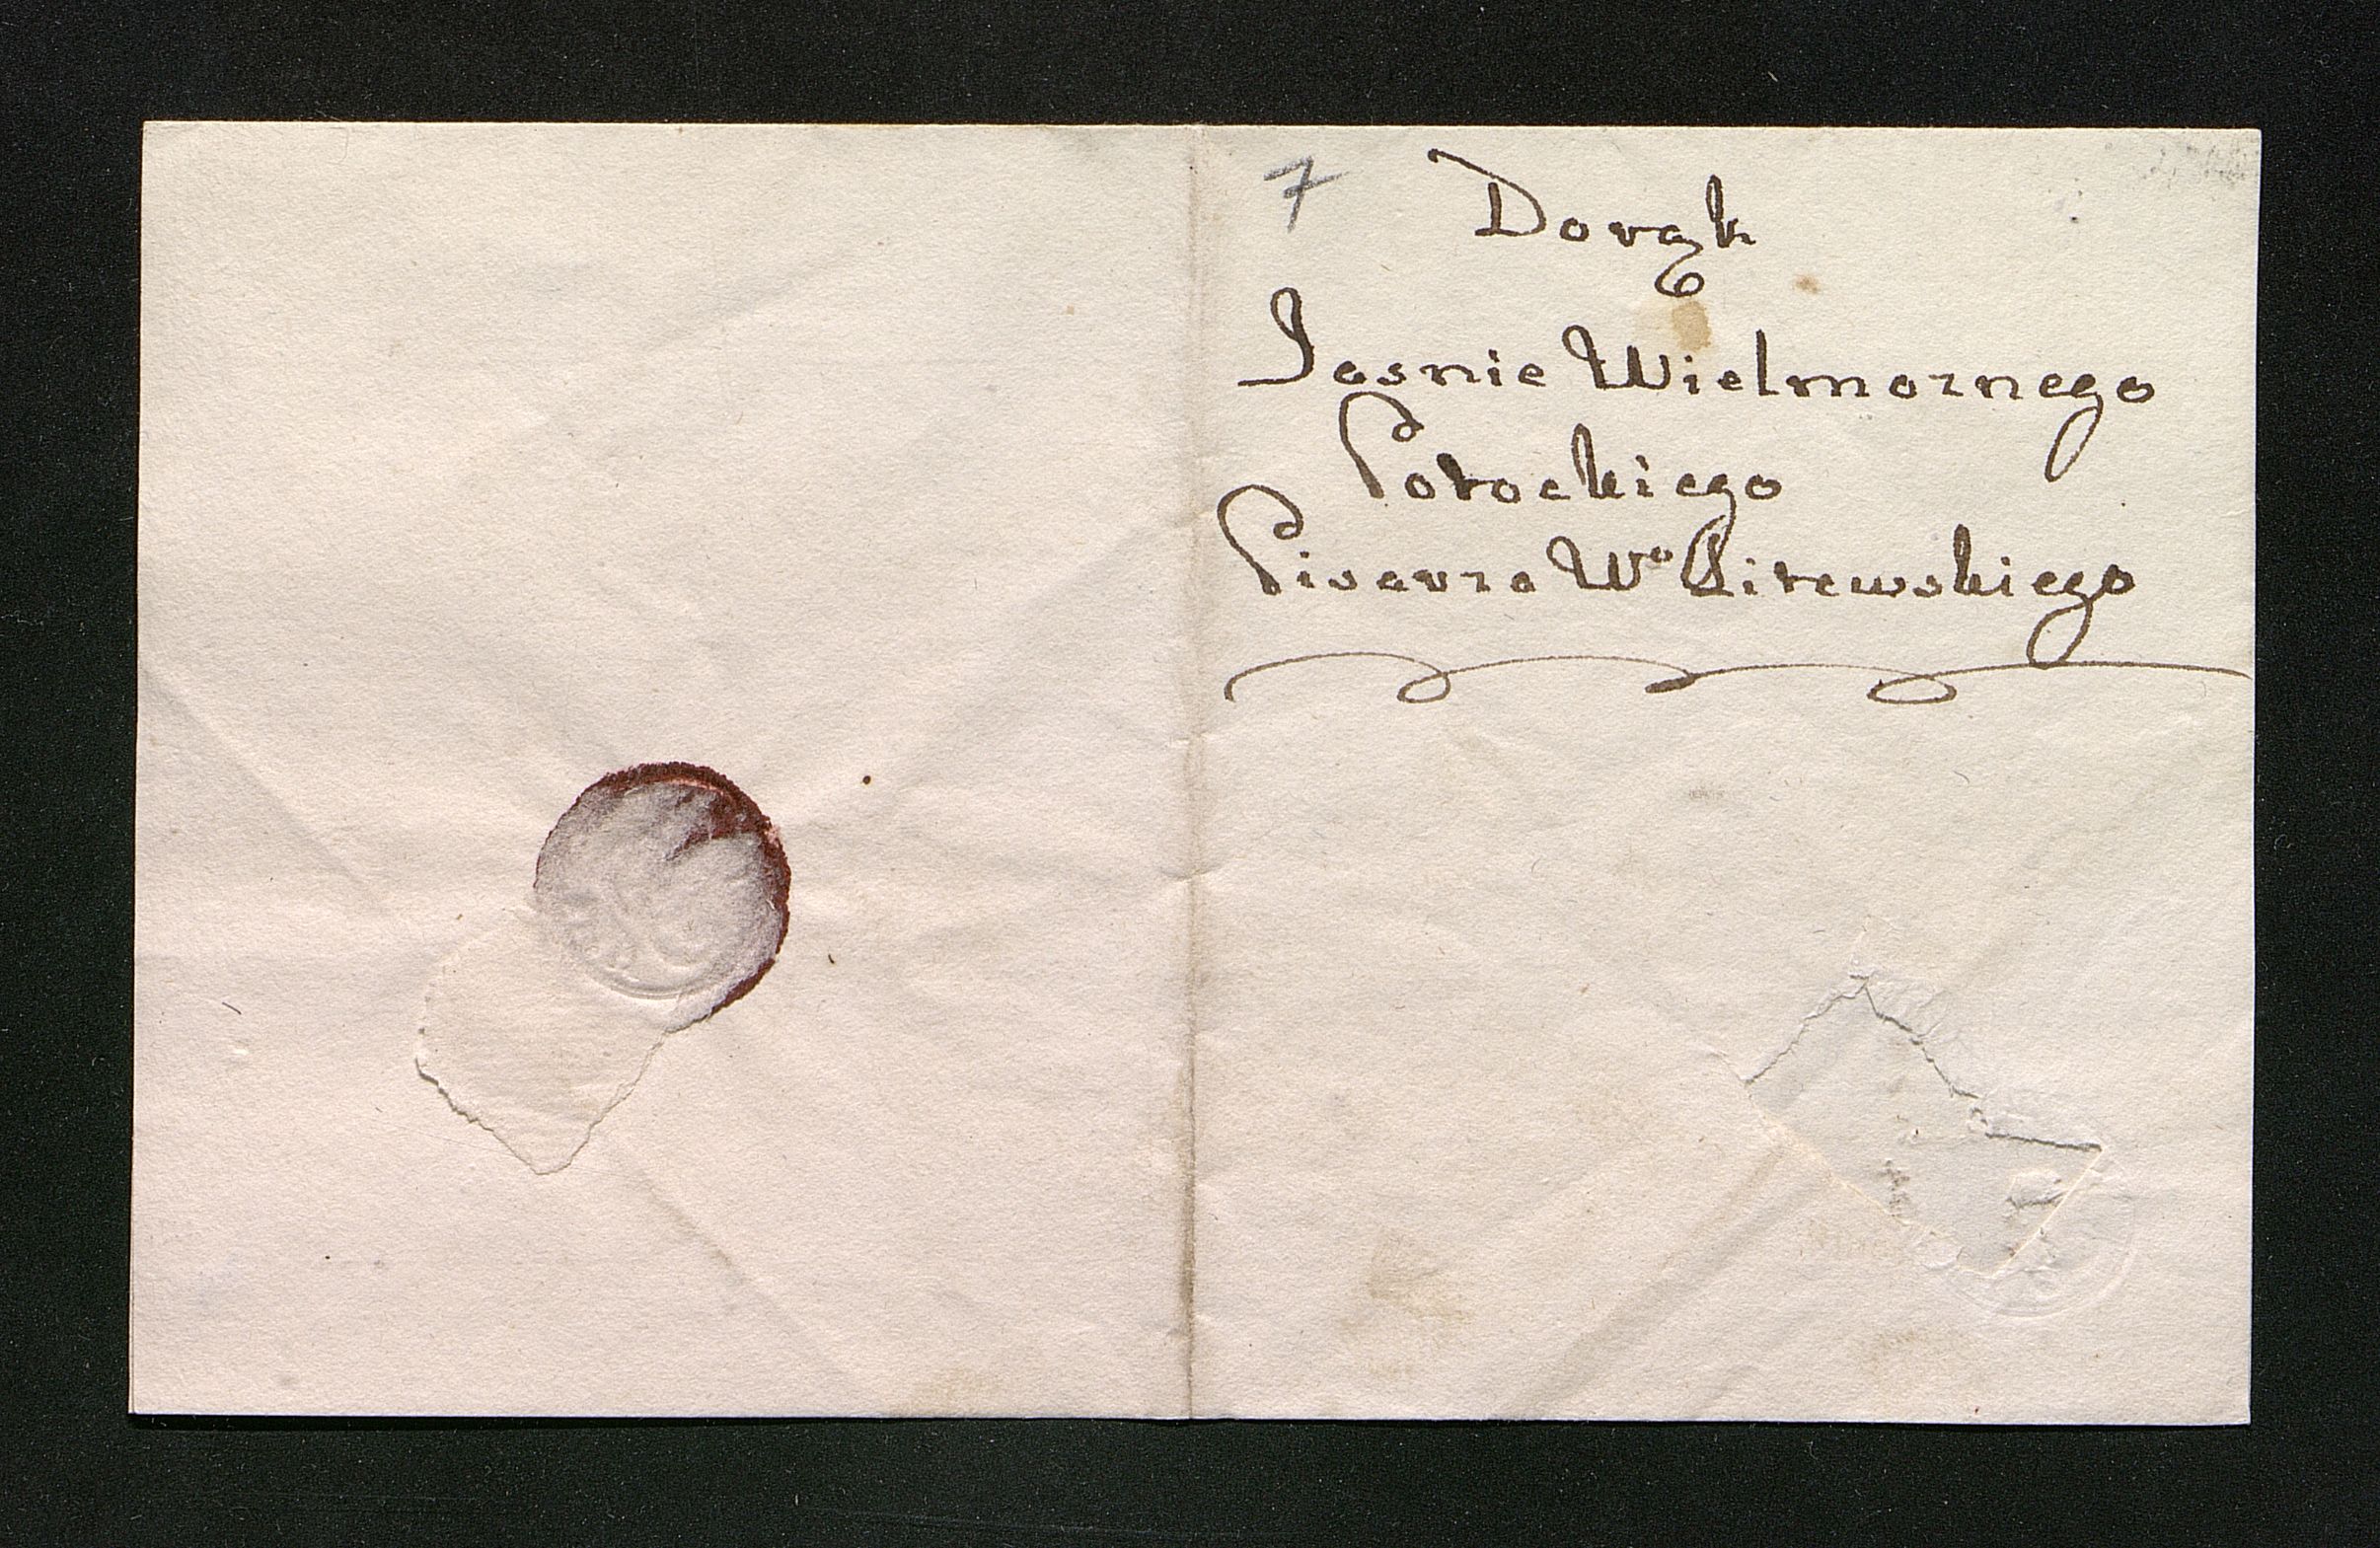 7
Do rąk
Jasnie Wielmoznego
Potockiego
Pisarza Wo Litewskiego